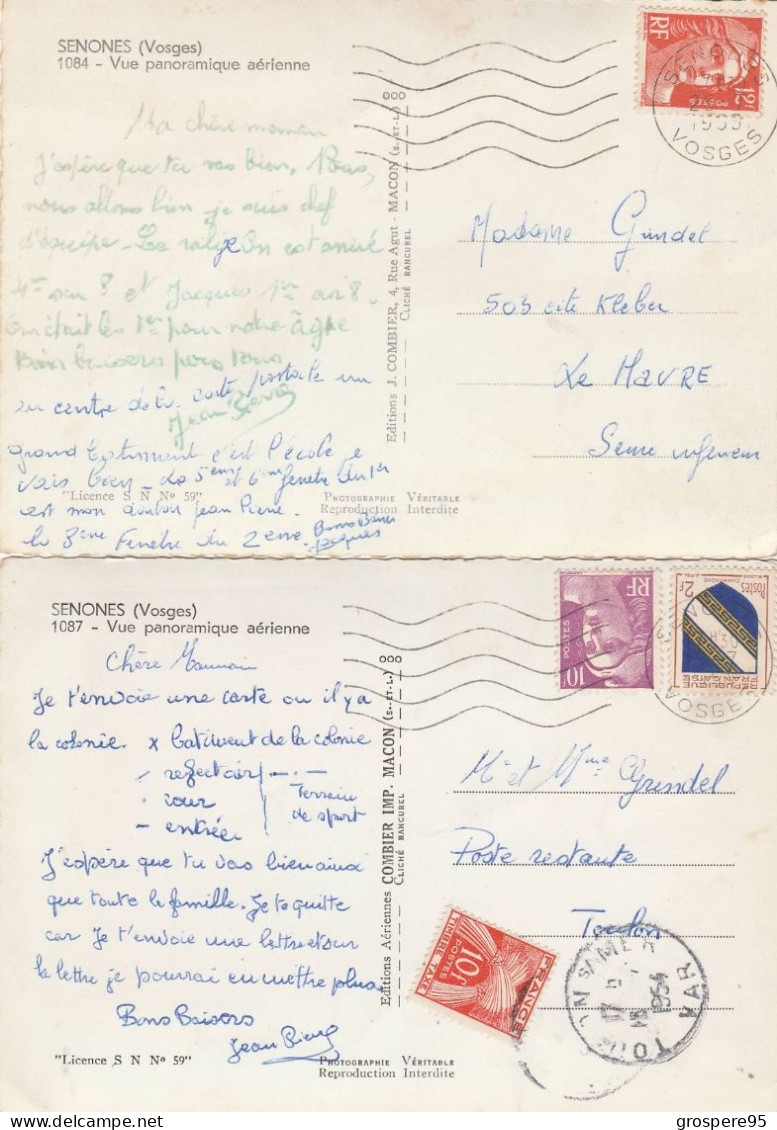 SENONES (Vosges)
1084 - Vue panoramique aérienne
Ma chère maman
J'espère que tu vas bien, Nous,
nous allons bien je suis chef
d'équipe - Le rallye On est arrivé
4ème sur 8 et Jacques 1er sur 8.
On était les 1er pour notre âge
Bons baisers pour tous
Jean Pierre
au centre de la carte postale un
grand batiment c'est l'école je
vais bien - La 5ème et 6ème fenetre du 1er
est mon dortoir jean Pierre
la 3ème Fenetre du 2eme.
Bons Baisers
Jacques
"Licence S N Nº 59"
PHOTOGRAPHIE VÉRITABLE
Reproduction Interdite
Editions J. COMBIER, 4, Rue Agut - MACON (S.-ET-L.)
CLICHÉ RANCUREL
RF
12F
POSTES
SENONES
VOSGES
Madame Grindel
503 cité Kleber
Le HAVRE
Seine inferieur
SENONES (Vosges)
1087 - Vue panoramique aérienne
Chère Maman
Je t'envoie une carte ou il y a
la colonie. x batiment de la colonie
refectoir
cour
- entrée
Terrain
de sport
J'espère que tu vas bien ainsi
que toute la famille. Je te quitte
car Je t'envoie une lettre et sur
la lettre je pourrai en mettre plus.
Bons Baisers
Jean Pierre
"Licence S N Nº 59"
PHOTOGRAPHIE VÉRITABLE
Reproduction Interdite
Editions Aériennes COMBIER IMP. MACON (S.-ET-L.)
CLICHÉ RANCUREL
RF
POSTES
10F
Postes
2F
CHAMPAGNE
REPUBLIQUE
FRANÇAISE
VOSGES
Mr et Mme Grindel
Poste restante
Toulon
FRANCE
10F
POSTES
TIMBRE TAXE
TOULON
VAR
1954
grospere95